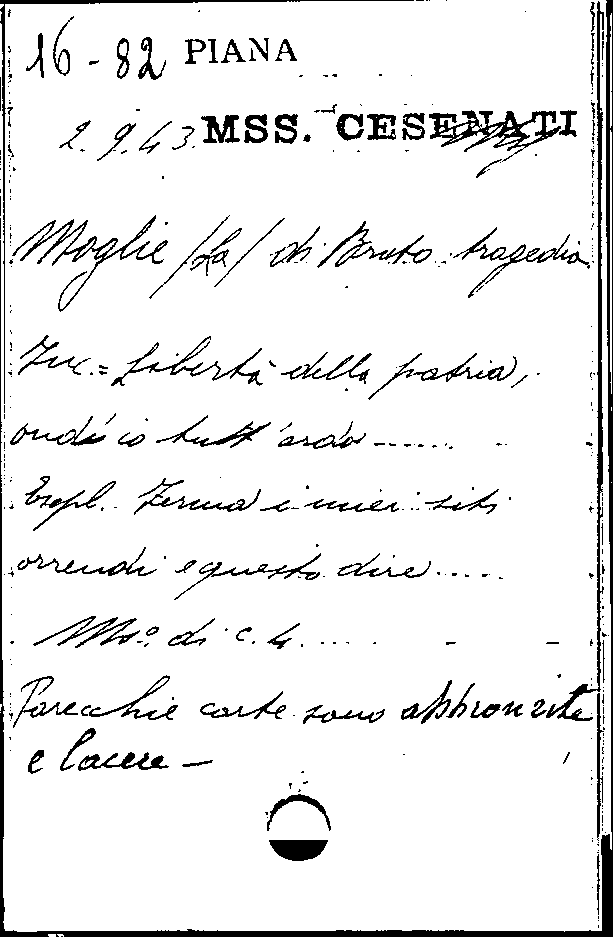 16-82 PIANA
2.9.43. MSS. CESENATI
Moglie /La/ di Bruto tragedia
Inc.= Libertà della patria,
ond'io tutt'ardo......
Espl. Ferma i miei
orrendi e questo dire.....
Mso. di c. 4....
Parecchie carte sono abbronzite
e lacere -